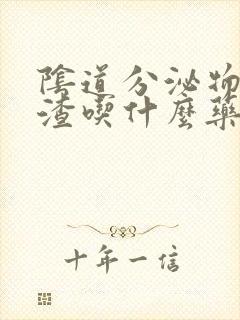 陰道分泌物
渣喫什麼藥
十年一信